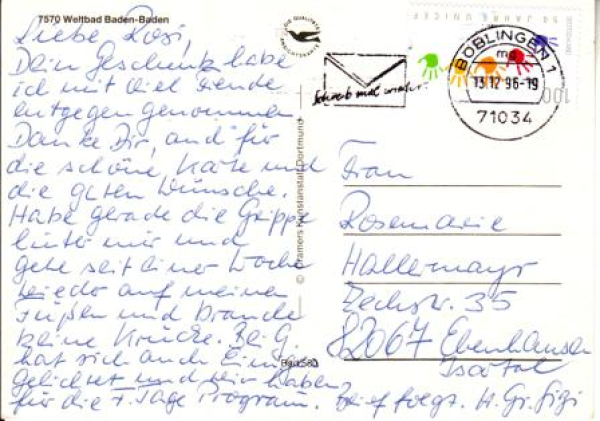 7570 Weltbad Baden-Baden
Liebe Rosi,
Dein Geschenk habe
ich mit viel Freude
entgegen genommen
Danke Dir, auch für
die schöne Karte und
die guten Wünsche.
Habe gerade die Grippe
hinter mir und
gehe seit einer Woche
wieder auf meinen
Füßen und brauche
keine Krücke. Bei G.
hat sich auch
gelichtet und wir haben
für die 7 Tage Program. Brief folgt. H. Gr. Gigi
© Cramers Kunstanstalt Dortmund
50 JAHRE UNICEF
100
Schreib mal wieder
BÖBLINGEN 1
mg
13.12.96-19
71034
Frau
Rosemarie
Hallermayr
Zechstr. 35
82067 Ebenhausen
Isartal